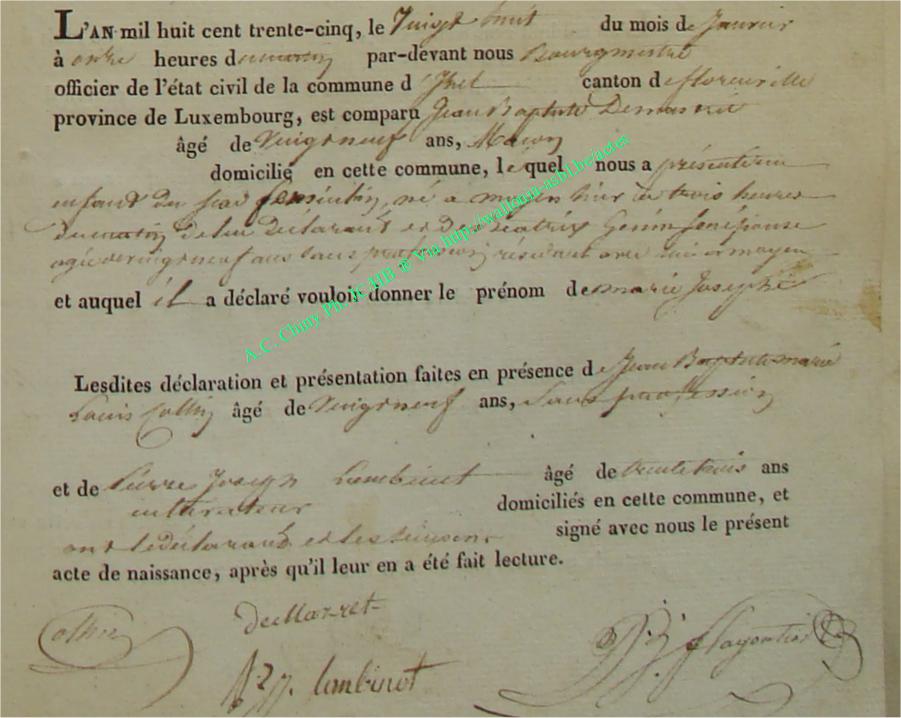 L'AN mil huit cent trente-cinq, le Vingt huit du mois de Janvier
à onze heures du matin par-devant nous Bourgmestre
officier de l'état civil de la commune d'Izel canton de florenville
province de Luxembourg, est comparu Jean Baptiste
âgé de Vingt neuf ans, Maçon
domicilié en cette commune, lequel nous a présenté un
enfant du sexe féminin, né a moyen hier a trois heures
du matin de lui Déclarant et de Beatrix son épouse
agée de vingt neuf ans sans profession, résidant avec lui a moyen
et auquel il a déclaré vouloir donner le prénom de marie Josephe
Lesdites déclaration et présentation faites en présence de Jean Baptiste marie
Louis Collin âgé de Vingt neuf ans, Sans profession
et de Pierre Joseph Lambinet âgé de trente trois ans
domiciliés en cette commune, et
ont le déclarant et les témoins signé avec nous le présent
acte de naissance, après qu'il leur en a été fait lecture.
Collin
Demarret
lambinet
A.C. Chiny Ph. JC MB @ Via http://wallonia-asbl.be/actes